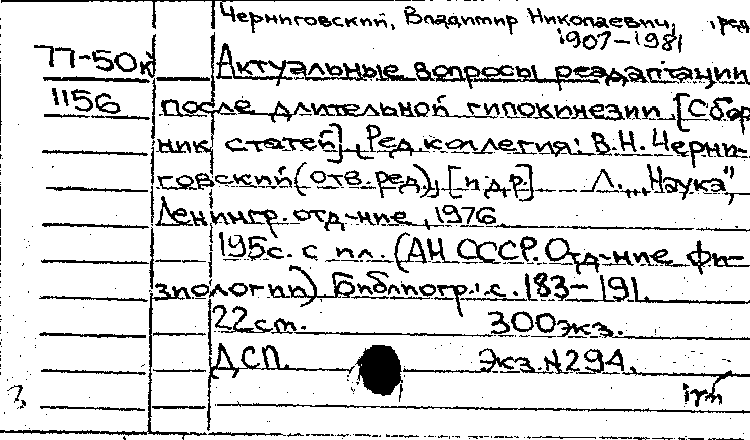 Черниговский, Владимир Николаевич, ред
1907-1981
77-50к Актуальные вопросы реадаптации
1156 после длительной гипокинезии. [Сбор
ник статей], Ред. коллегия: В.Н. Черни-
говский (отв. ред), [и др.] Л., „Наука",
Ленингр. отд-ние, 1976.
195с. с ил. (АН СССР. Отд-ние фи-
зиологии). Библиогр.: с. 183-191.
22см. 300экз.
ДСП. Экз. №294.